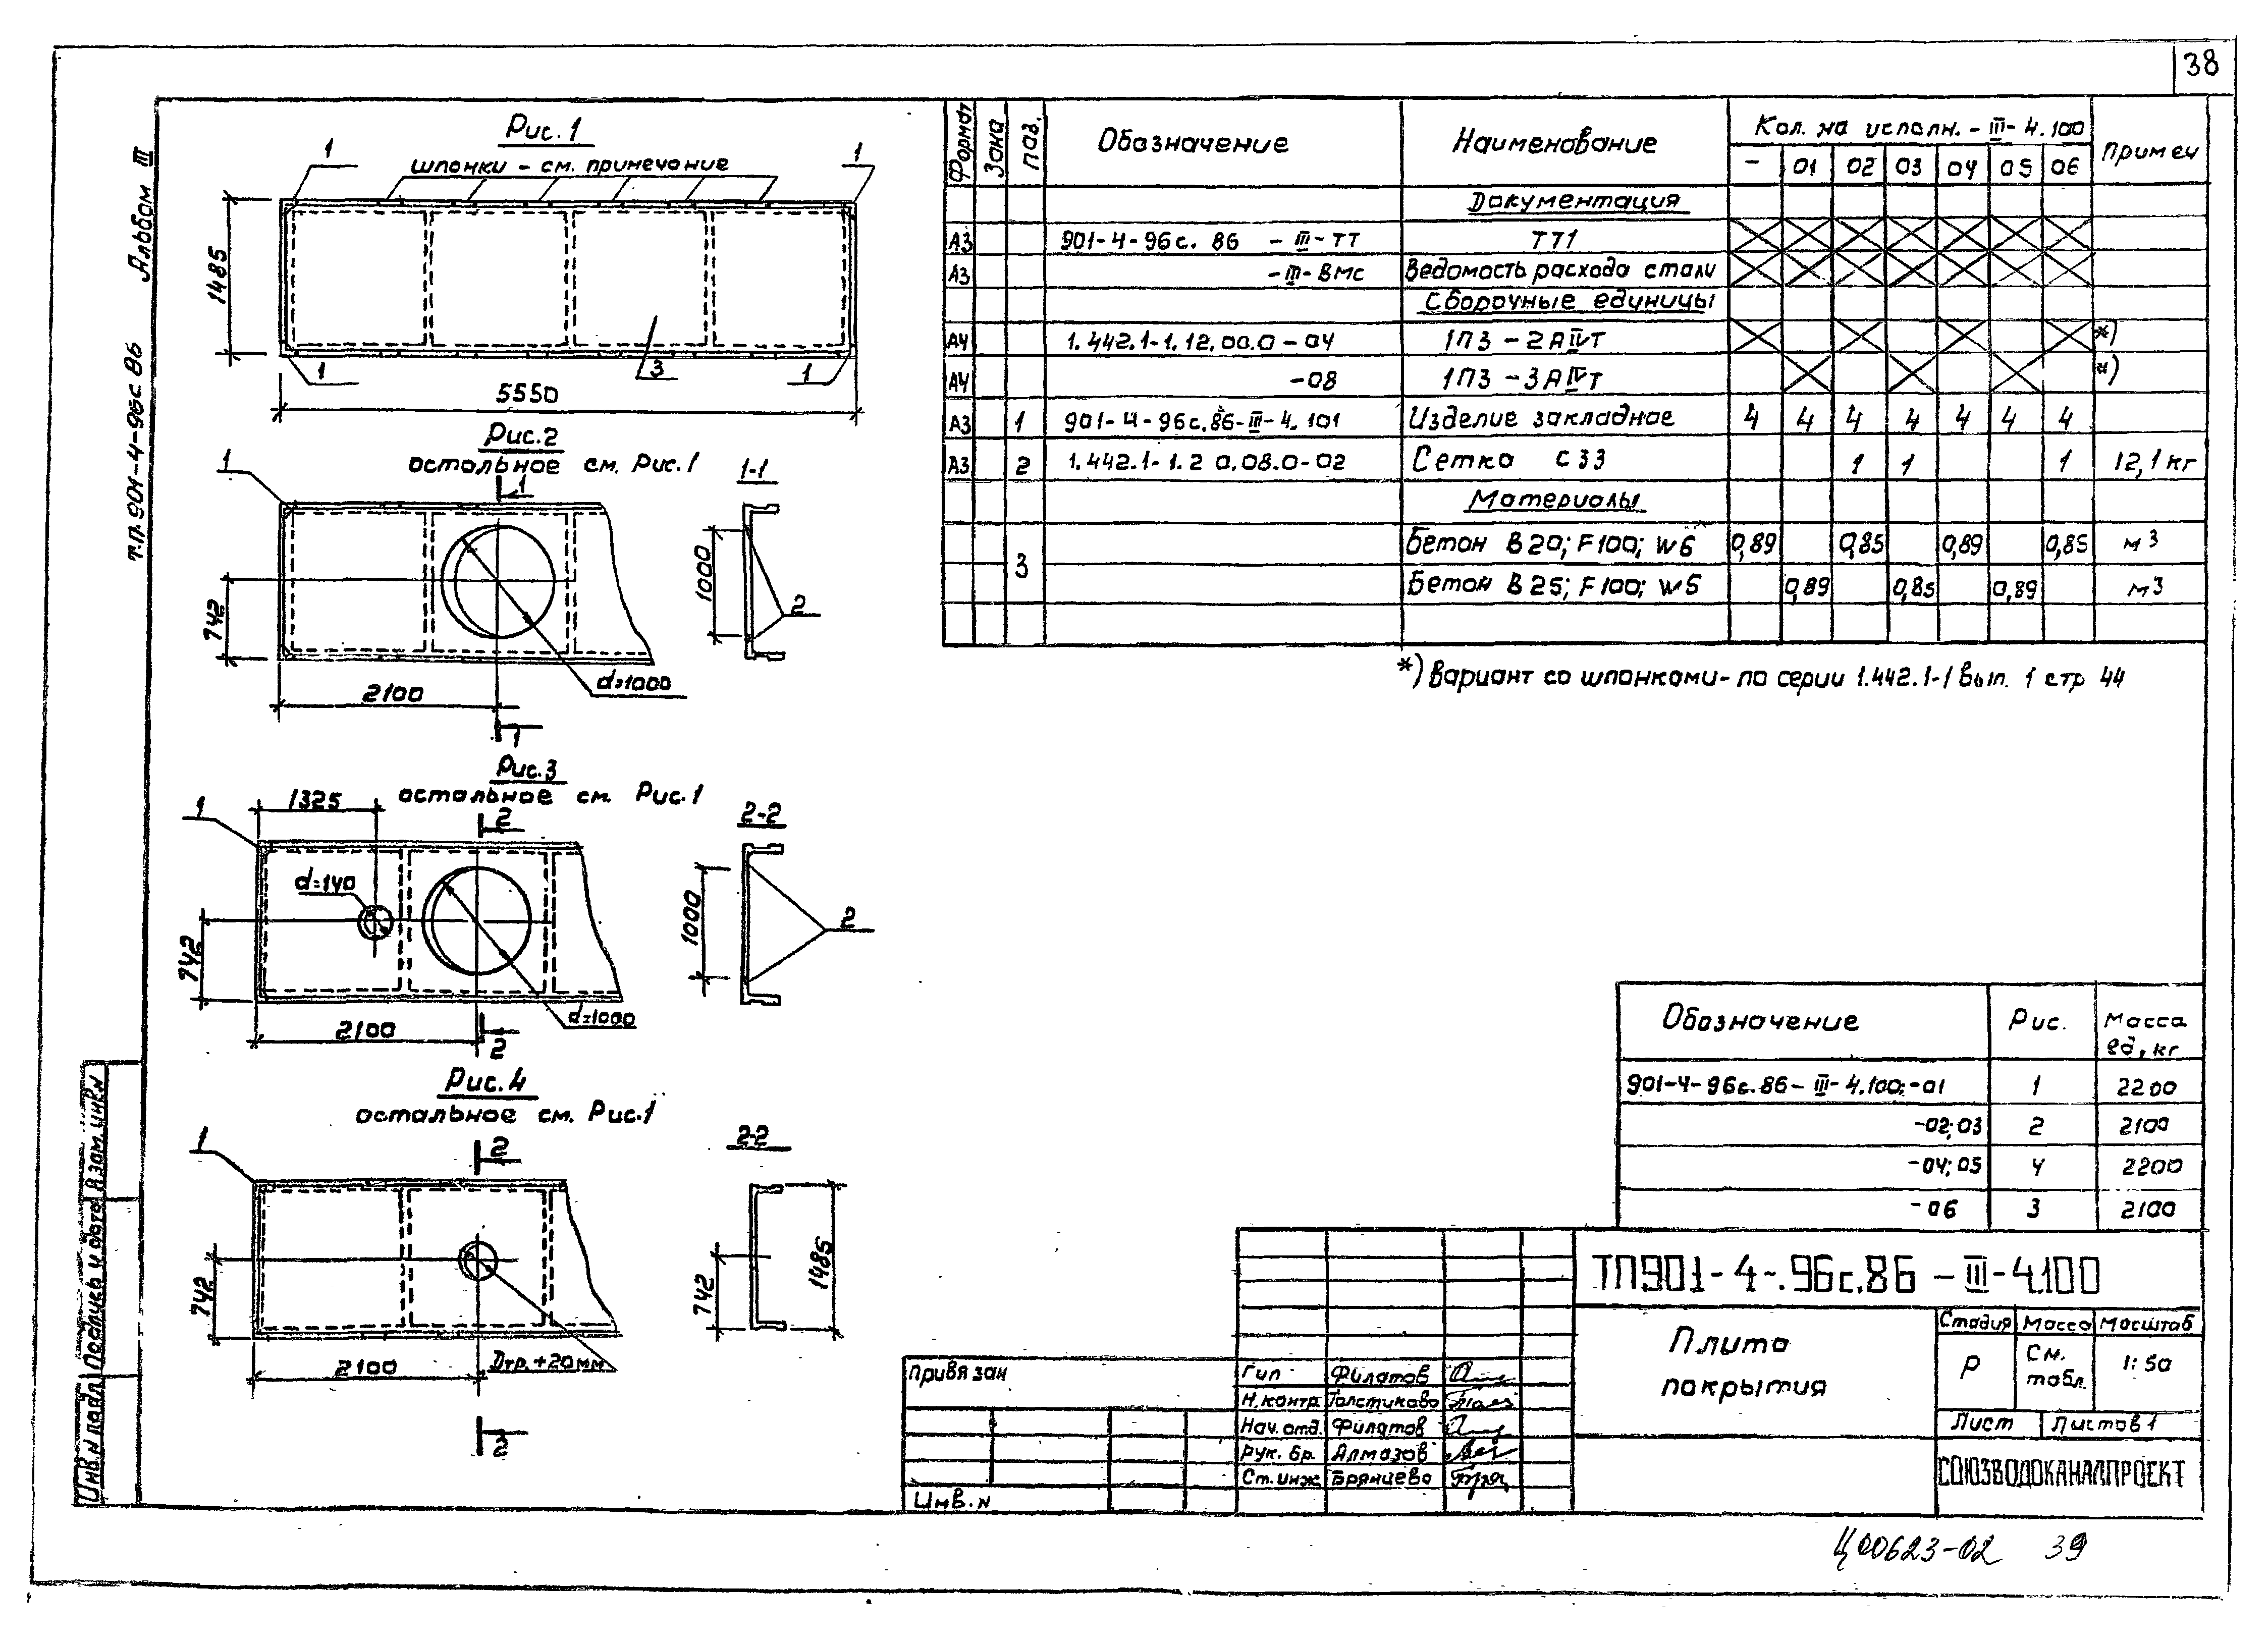 38
Альбом III
т.п. 901-4-96с 86
Рис. 1
шпонки - см. примечание
1
1
1485
1
3
1
5550
Рис. 2
остальное см. Рис. 1
1
1
1-1
742
1000
2
d=1000
2100
1
Рис. 3
остальное см. Рис. 1
1325
1
2
2-2
d=140
742
1000
2
d=1000
2100
2
Рис. 4
остальное см. Рис. 1
1
2
2-2
742
742
1485
2100
Dтр.+20мм
2
Формат
Зона
поз.
Обозначение
Наименование
Кол. на исполн. - III - 4.100
Примеч
- 01 02 03 04 05 06
Документация
А3 901-4-96с. 86 - III - ТТ ТТ1
А3 - III - ВМС Ведомость расхода стали
Сборочные единицы
А4 1.442.1-1.12.00.0-04 1П3-2АIVТ *)
А4 -08 1П3-3АIVТ *)
А3 1 901-4-96с.86-III-4.101 Изделие закладное 4 4 4 4 4 4 4
А3 2 1.442.1-1.2 0.08.0-02 Сетка С33 1 1 1 12,1 кг
Материалы
3
Бетон В20; F100; W6 0,89 0,85 0,89 0,85 м3
Бетон В25; F100; W6 0,89 0,85 0,89 м3
*) Вариант со шпонками - по серии 1.442.1-1 вып. 1 стр 44
Обозначение Рис. Масса ед, кг
901-4-96с.86-III-4.100;-01 1 2200
-02;03 2 2100
-04;05 4 2200
-06 3 2100
ТП901-4-.96с.86-III-4.100
Плита
покрытия
Стадия Масса Масштаб
Р См. табл. 1:50
Лист Листов 1
СОЮЗВОДОКАНАЛПРОЕКТ
Привязан
Инв. N
Гип Филатов
Н. контр. Толстикова
Нач. отд. Филатов
Рук. бр. Алмазов
Ст. инж. Брянцева
Инв. N подл. Подпись и дата Взам. инв. N
Ц00623-02 39